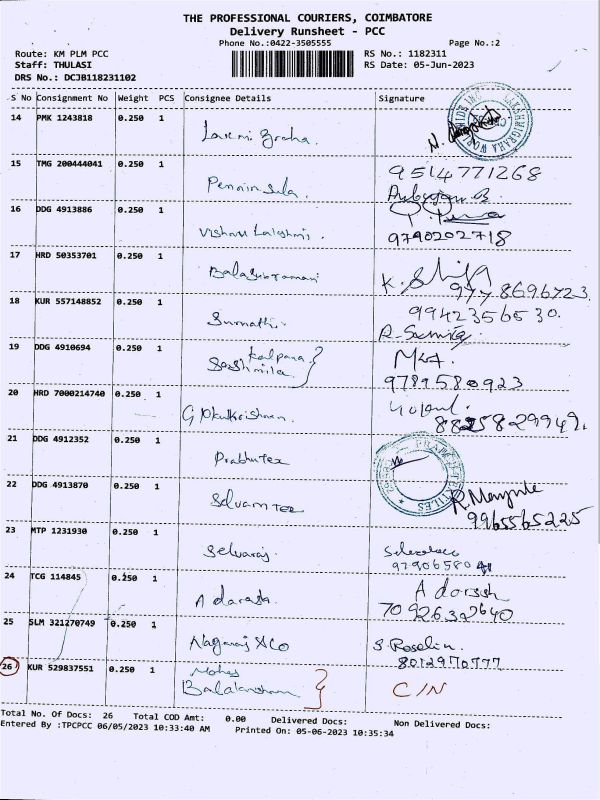 THE PROFESSIONAL COURIERS, COIMBATORE
Delivery Runsheet - PCC
Phone No.:0422-3505555 Page No.:2
Route: KM PLM PCC RS No.: 1182311
Staff: THULASI RS Date: 05-Jun-2023
DRS No.: DCJB118231102
S No Consignment No Weight PCS Consignee Details Signature
14 PMK 1243818 0.250 1 Laxmi Graha.
15 TMG 200444041 0.250 1 Peninsula. 9514771268
16 DDG 4913886 0.250 1 Vishnu Lakshmi. 9790202718
17 HRD 50353701 0.250 1 Balasubramani 9778696723
18 KUR 557148852 0.250 1 Sumathi. 9942356530.
19 DDG 4910694 0.250 1 kalpana 9789580923
20 HRD 7000214740 0.250 1 Gokulkrishnan.
21 DDG 4912352 0.250 1 Prabhutex
22 DDG 4913870 0.250 1 Selvam Tex 9965565225
23 MTP 1231930 0.250 1 Selvaraj.
24 TCG 114845 0.250 1 Adarsh. Adarsh 7092632640
25 SLM 321270749 0.250 1 Nagaraj & Co S. Roselin. 8012970777
26 KUR 529837551 0.250 1 Balakrishnan C/N
Total No. Of Docs: 26 Total COD Amt: 0.00 Delivered Docs: Non Delivered Docs:
Entered By :TPCPCC 06/05/2023 10:33:40 AM Printed On: 05-06-2023 10:35:34